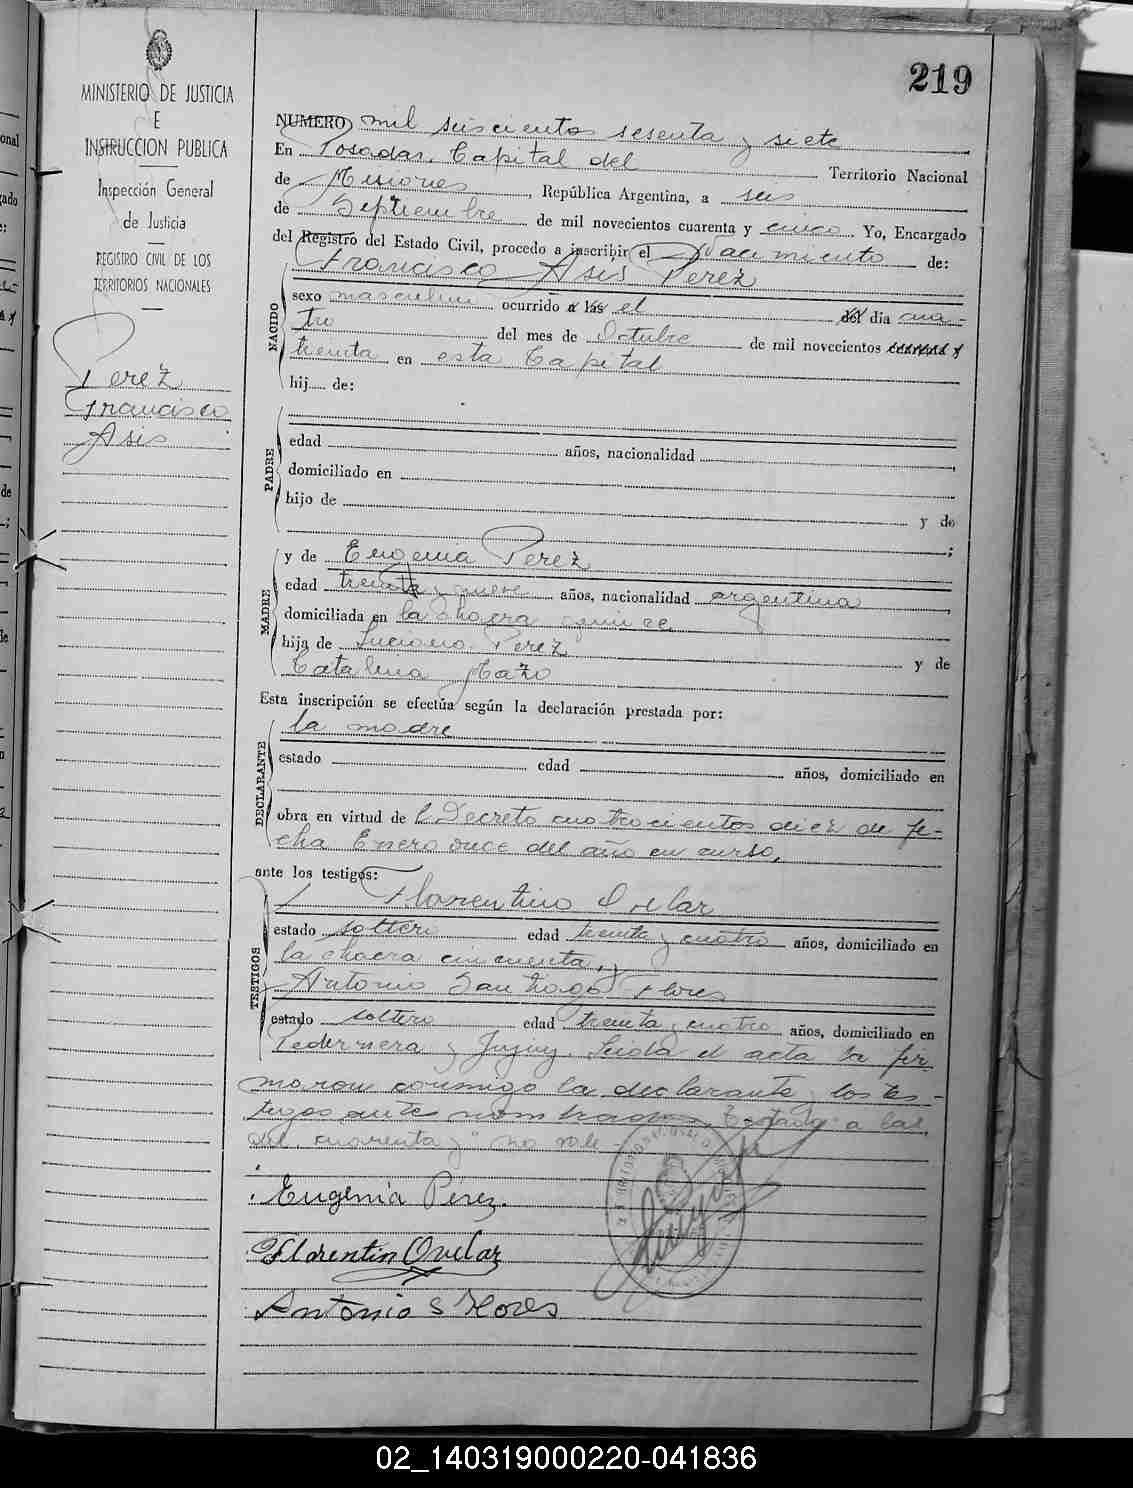 219
MINISTERIO DE JUSTICIA
E
INSTRUCCION PUBLICA
Inspección General
de Justicia
REGISTRO CIVIL DE LOS
TERRITORIOS NACIONALES
Perez
Francisco
Asis
NUMERO mil seiscientos sesenta y siete
En Posadas, Capital del Territorio Nacional
de Misiones, República Argentina, a seis
de Septiembre de mil novecientos cuarenta y cinco Yo, Encargado
del Registro del Estado Civil, procedo a inscribir el Nacimiento de:
Francisco Asis Perez
NACIDO
sexo masculino ocurrido a las el del día cua-
tro del mes de Octubre de mil novecientos cuarenta y
treinta en esta Capital
hij de:
PADRE
edad años, nacionalidad
domiciliado en
hijo de y de
;
MADRE
y de Eugenia Perez
edad treinta y nueve años, nacionalidad argentina
domiciliada en la chacra quince
hija de Luciano Perez y de
Catalina Mazo
Esta inscripción se efectúa según la declaración prestada por:
la madre
DECLARANTE
estado edad años, domiciliado en
obra en virtud del Decreto cuatrocientos diez de fe-
cha Enero once del año en curso,
ante los testigos:
TESTIGOS
Florentino Ovelar
estado soltero edad treinta y cuatro años, domiciliado en
la chacra cincuenta, y
Antonio Santiago Flores
estado soltero edad treinta y cuatro años, domiciliado en
Pedernera y Jujuy. Leida el acta la fir
maron conmigo la declarante y los tes-
tigos antes nombrados. Testado: a las,
del, cuarenta y" no vale.
Eugenia Perez.
Florentin Ovelar
Antonio S Flores
02_140319000220-041836